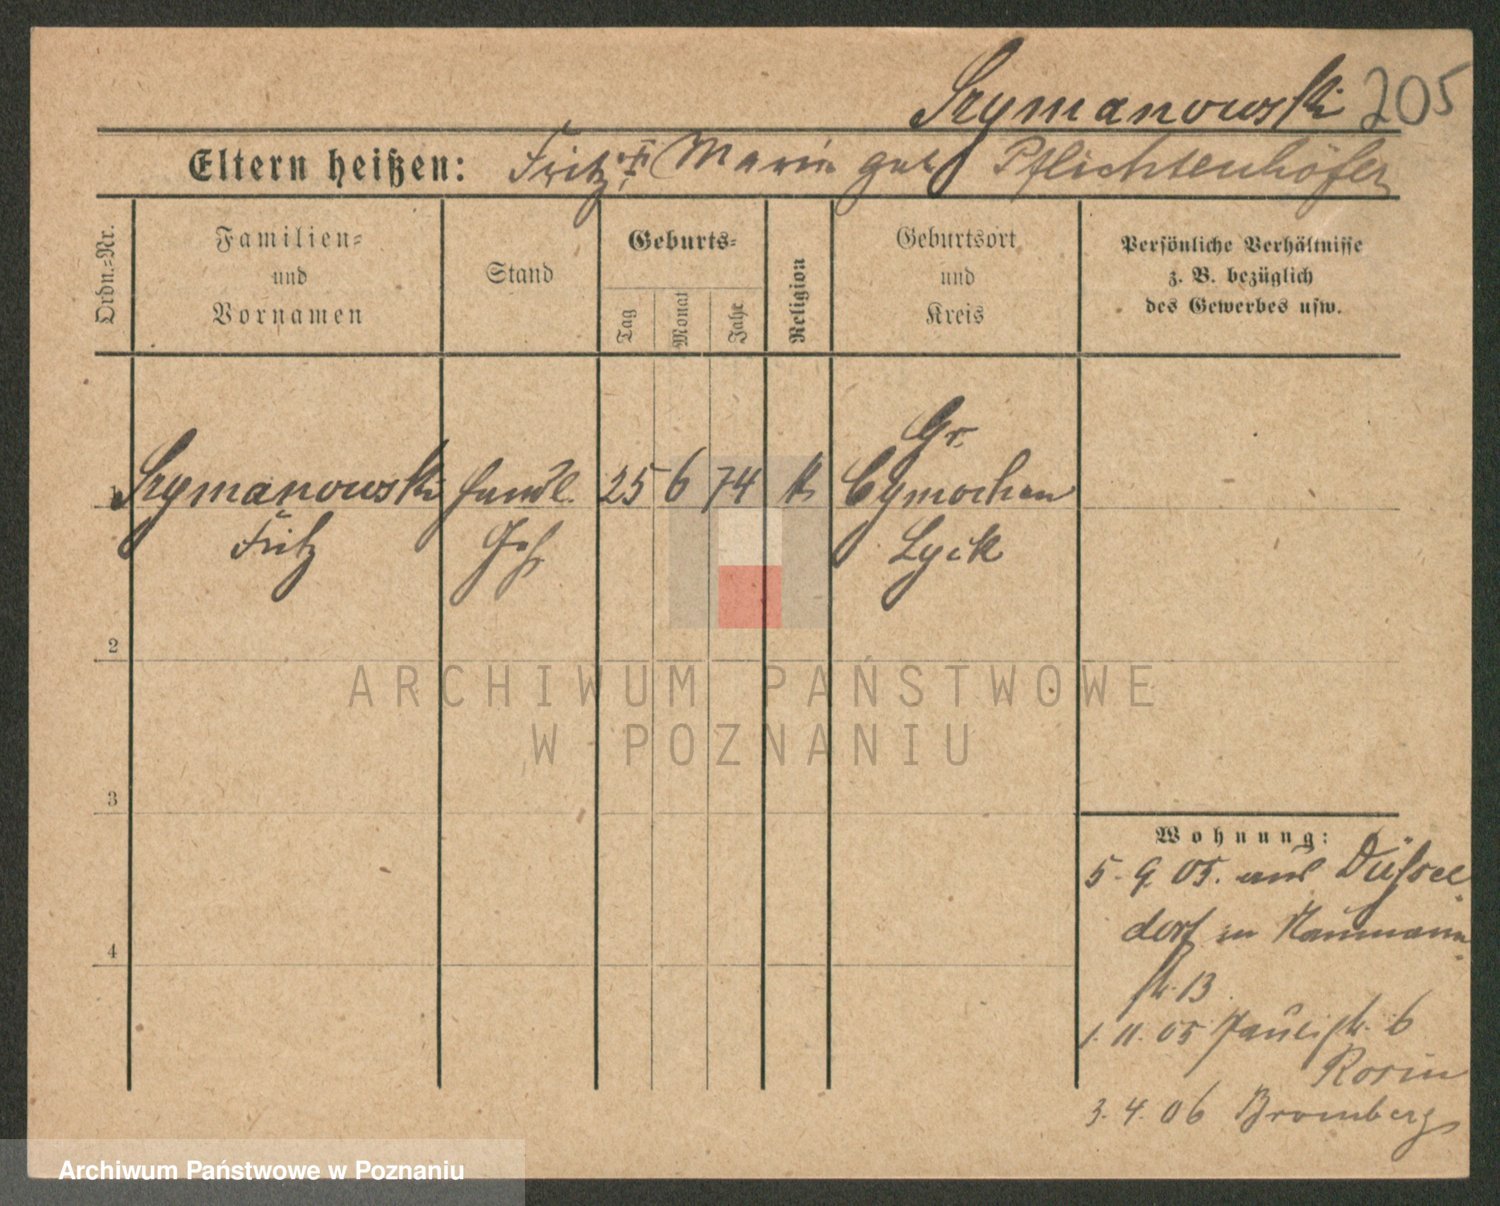 Szymanowski 205
Eltern heißen: Fritz u. Marie geb Pflichtenhöfer
Ordn.-Nr.
Familien-
und
Vornamen
Stand
Geburts-
Tag
Monat
Jahr
Religion
Geburtsort
und
Kreis
Persönliche Verhältnisse
z. B. bezüglich
des Gewerbes usw.
1 Szymanowski
Fritz
Handl.
Geh.
25 6 74 k
Gr.
Cymochen
Lyck
2
3
4
Wohnung:
5. 9. 05. aus Düssel-
dorf in Naumann-
str. 13
1. 11. 05 Paulistr. 6
Rosin
3. 4. 06 Bromberg
ARCHIWUM PAŃSTWOWE
W POZNANIU
Archiwum Państwowe w Poznaniu